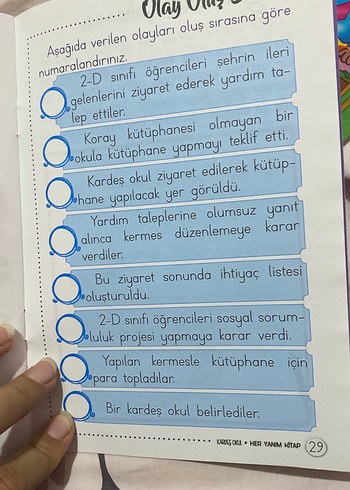 Olay Oluş
Aşağıda verilen olayları oluş sırasına göre
numaralandırınız.
2-D sınıfı öğrencileri şehrin ileri
gelenlerini ziyaret ederek yardım ta-
lep ettiler.
Koray kütüphanesi olmayan bir
okula kütüphane yapmayı teklif etti.
Kardeş okul ziyaret edilerek kütüp-
hane yapılacak yer görüldü.
Yardım taleplerine olumsuz yanıt
alınca kermes düzenlemeye karar
verdiler.
Bu ziyaret sonunda ihtiyaç listesi
oluşturuldu.
2-D sınıfı öğrencileri sosyal sorum-
luluk projesi yapmaya karar verdi.
Yapılan kermesle kütüphane için
para topladılar.
Bir kardeş okul belirlediler.
KARDEŞ OKUL • HER YANIM KİTAP 29